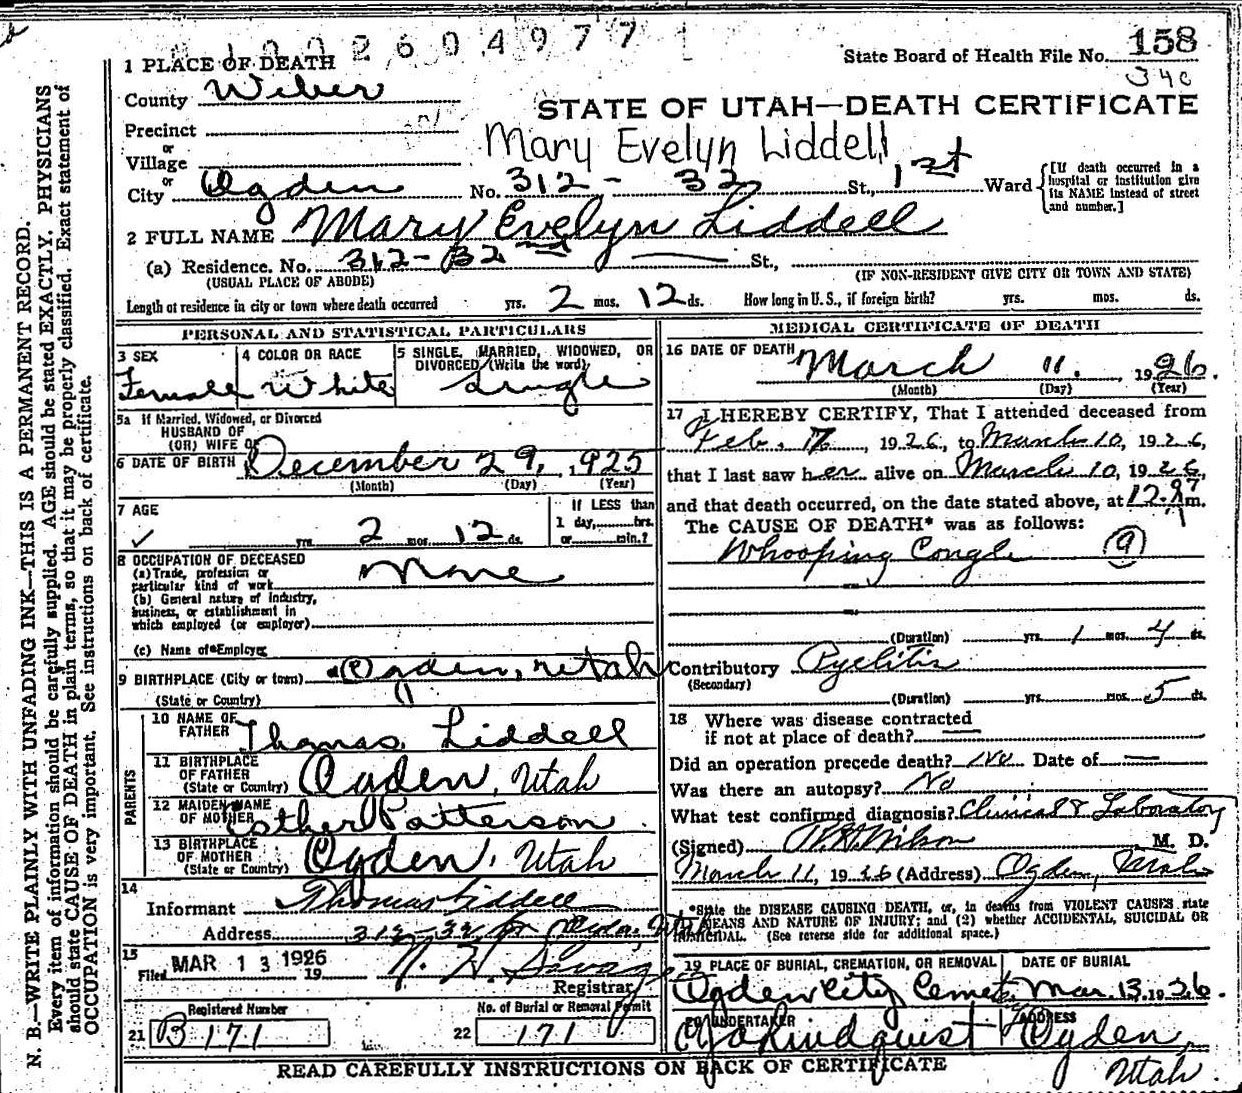 1002604977 1
State Board of Health File No. 158
340
1 PLACE OF DEATH
County Weber
STATE OF UTAH—DEATH CERTIFICATE
Precinct
or
Village
Mary Evelyn Liddell
City or Ogden No. 312 - 32 St., 1st Ward
[If death occurred in a hospital or institution give its NAME instead of street and number.]
2 FULL NAME Mary Evelyn Liddell
(a) Residence. No. 312 - 32nd St.,
(USUAL PLACE OF ABODE) (IF NON-RESIDENT GIVE CITY OR TOWN AND STATE)
Length of residence in city or town where death occurred yrs. 2 mos. 12 ds. How long in U. S., if foreign birth? yrs. mos. ds.
PERSONAL AND STATISTICAL PARTICULARS
3 SEX
Female
4 COLOR OR RACE
White
5 SINGLE, MARRIED, WIDOWED, OR DIVORCED (Write the word)
Single
5a If Married, Widowed, or Divorced
HUSBAND OF
(OR) WIFE OF
6 DATE OF BIRTH December 29, 1925
(Month) (Day) (Year)
7 AGE
yrs. 2 mos. 12 ds.
If LESS than
1 day, hrs.
or min.?
8 OCCUPATION OF DECEASED
(a) Trade, profession or
particular kind of work None
(b) General nature of industry,
business, or establishment in
which employed (or employer)
(c) Name of Employer
9 BIRTHPLACE (City or town) Ogden, Utah
(State or Country)
PARENTS
10 NAME OF FATHER Thomas Liddell
11 BIRTHPLACE OF FATHER
(State or Country) Ogden, Utah
12 MAIDEN NAME OF MOTHER Esther Patterson
13 BIRTHPLACE OF MOTHER
(State or Country) Ogden, Utah
14
Informant Thomas Liddell
Address 312-32 Ogden, Utah
15
Filed MAR 13 1926 19
Registrar
Registered Number
21 B 171
No. of Burial or Removal Permit
22 171
MEDICAL CERTIFICATE OF DEATH
16 DATE OF DEATH March 11, 1926.
(Month) (Day) (Year)
17 I HEREBY CERTIFY, That I attended deceased from
Feb. 17, 1926, to March 10, 1926,
that I last saw her alive on March 10, 1926,
and that death occurred, on the date stated above, at m.
The CAUSE OF DEATH* was as follows:
Whooping Cough (9)
(Duration) yrs. 1 mos. 4 ds.
Contributory Pyelitis
(Secondary)
(Duration) yrs. mos. 5 ds.
18 Where was disease contracted
if not at place of death?
Did an operation precede death? No Date of
Was there an autopsy? No
What test confirmed diagnosis? Clinical & Laboratory
(Signed) Wilson M. D.
March 11, 1926 (Address) Ogden, Utah
*State the DISEASE CAUSING DEATH, or, in deaths from VIOLENT CAUSES, state
MEANS AND NATURE OF INJURY; and (2) whether ACCIDENTAL, SUICIDAL OR
HOMICIDAL. (See reverse side for additional space.)
19 PLACE OF BURIAL, CREMATION, OR REMOVAL
Ogden City Cemet.
DATE OF BURIAL
Mar. 13, 1926.
20 UNDERTAKER
Lindquist
ADDRESS
Ogden,
Utah.
READ CAREFULLY INSTRUCTIONS ON BACK OF CERTIFICATE
N. B.—WRITE PLAINLY WITH UNFADING INK—THIS IS A PERMANENT RECORD.
Every item of information should be carefully supplied. AGE should be stated EXACTLY. PHYSICIANS
should state CAUSE OF DEATH in plain terms, so that it may be properly classified. Exact statement of
OCCUPATION is very important. See instructions on back of certificate.